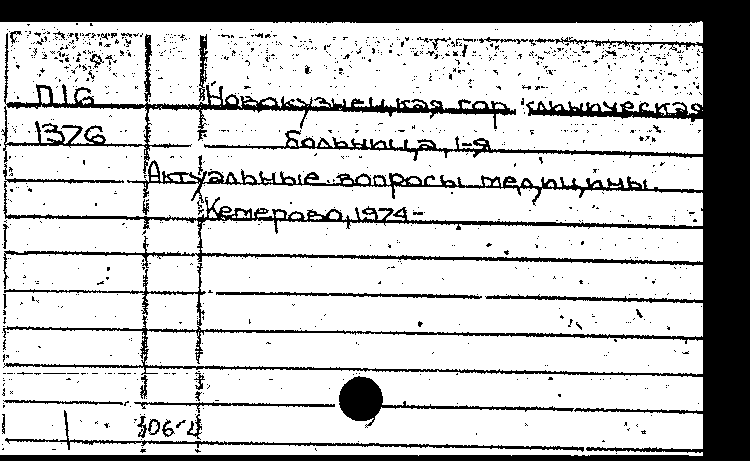 П16 Новокузнецкая гор. клиническая
1376 больница, 1-я
Актуальные вопросы медицины.
Кемерово, 1974-